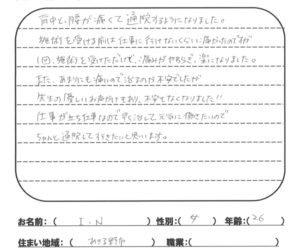 背中と腰が痛くて通院するようになりました。
施術を受ける前は仕事に行けないくらい痛かったのですが
1回、施術を受けただいで、痛みがやわらぎ、楽になりました。
また、あまりにも痛いので治るのか不安でしたが
先生の優しいお声がけもあり、不安でなくなりました!!
仕事が立ち仕事なので早く治して元気に働きたいので
ちゃんと通院して行きたいと思います。
お名前:( I.N ) 性別:( 女 ) 年齢:( 26 )
住まい地域:( あきる野市 ) 職業:( )